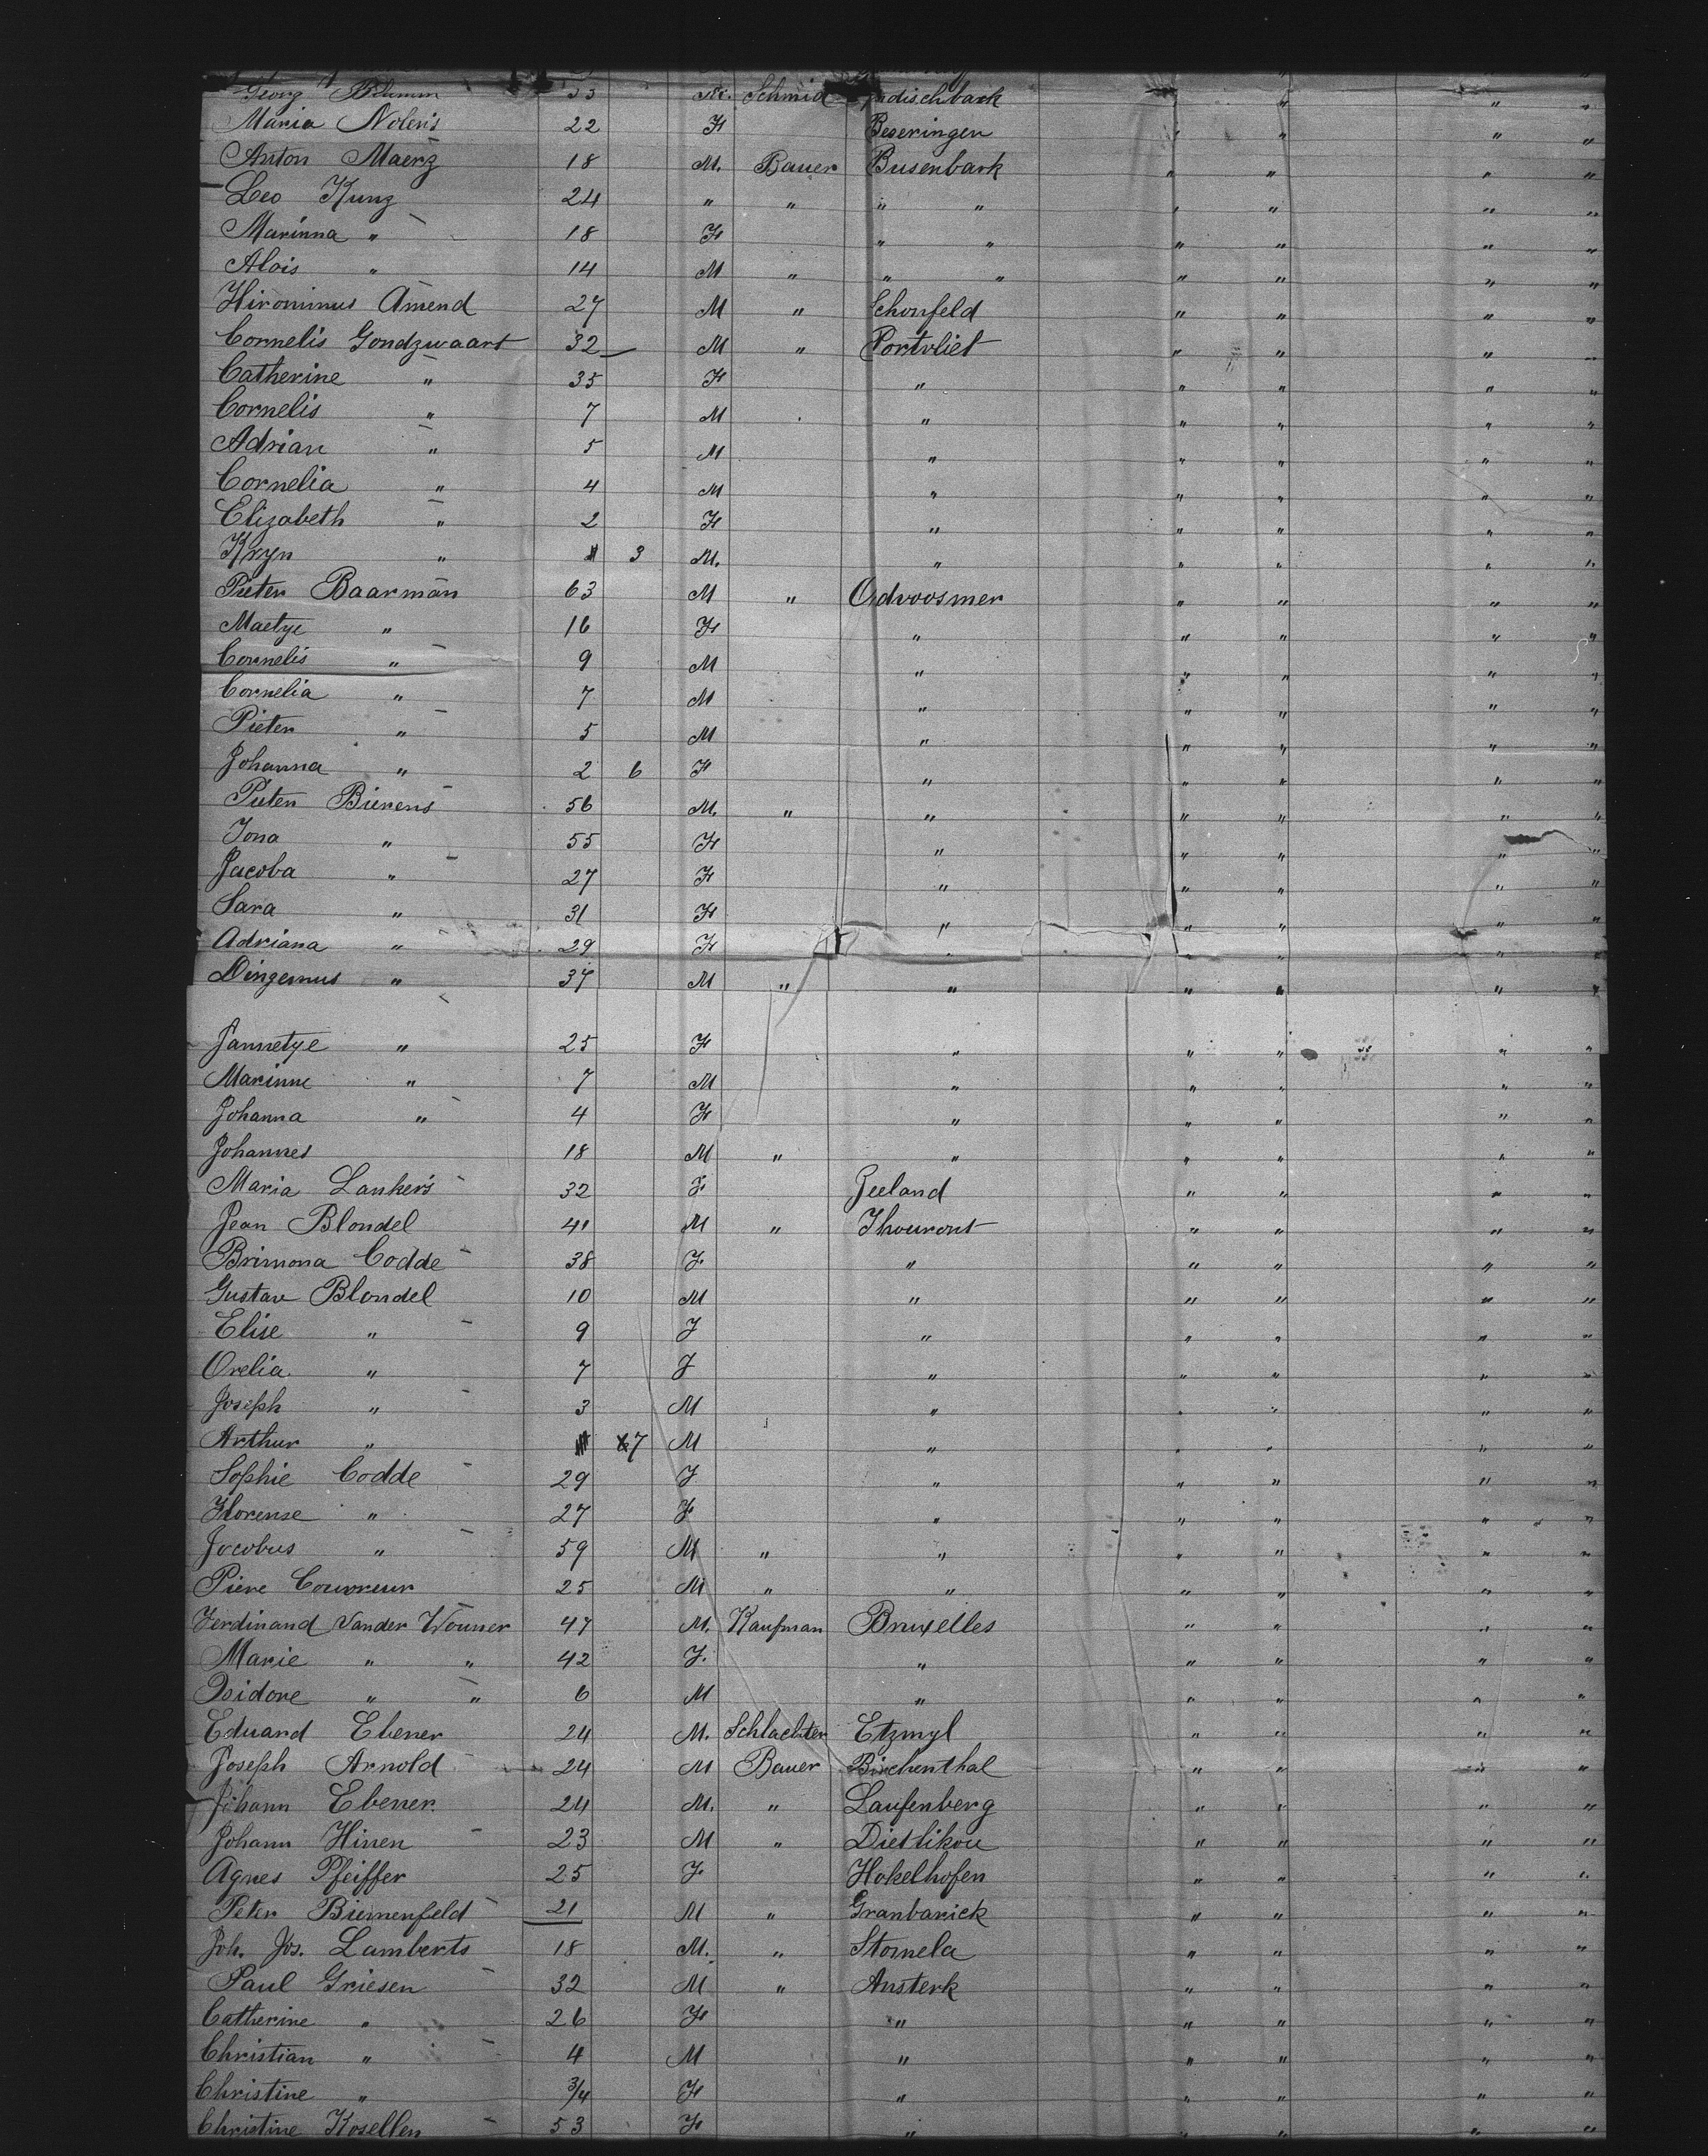 Georg Blumm 33 M. Schmid " " " "
Maria Nolens 22 F Beseringen " " " "
Anton Maerz 18 M. Bauer Busenbark " " " "
Leo Kunz 24 " " " " " " " "
Marinna " 18 F " " " " " "
Alois " 14 M " " " " " " "
Hironimus Amend 27 M " Schonfeld " " " "
Cornelis Gondzwaart 32 M " Portvliet " " " "
Catherine " 35 F " " " " "
Cornelis " 7 M " " " " "
Adrian " 5 M " " " " "
Cornelia " 4 M " " " " "
Elizabeth " 2 F " " " " "
Kryn " 3 M. " " " " "
Pieter Baarman 63 M " Odvoosmer " " " "
Maetye " 16 F " " " " "
Cornelis " 9 M " " " " "
Cornelia " 7 M " " " " "
Pieter " 5 M " " " " "
Johanna " 2 6 F " " " " "
Pieter Bierens 56 M. " " " " " "
Jona " 55 F " " " " "
Jacoba " 27 F " " " " "
Sara " 31 F " " " " "
Adriana " 29 F " " " " "
Dingemus " 37 M " " " " " "
Jannetye " 25 F " " " " "
Marinne " 7 M " " " " "
Johanna " 4 F " " " " "
Johannes 18 M " " " " " "
Maria Lankers 32 F Zeeland " " " "
Jean Blondel 41 M " Thouront " " " "
Brimona Codde 38 F. " " " " "
Gustav Blondel 10 M " " " " "
Elise " 9 F " " " " "
Orelia " 7 F " " " " "
Joseph " 3 M " " " " "
Arthur " 7 M " " " " "
Sophie Codde 29 F " " " " "
Florense " 27 F " " " " "
Jocobus " 59 M " " " " " "
Piere Couvreur 25 M " " " " " "
Ferdinand Vander Wouner 47 M. Kaufman Bruxelles " " " "
Marie " " 42 F. " " " " "
Isidore " " 6 M " " " " "
Eduard Ebener 24 M. Schlachter Etzmyl " " " "
Joseph Arnold 24 M Bauer Birchenthal " " " "
Johann Ebener 24 M. " Laufenberg " " " "
Johann Hinen 23 M " Dietlikou " " " "
Agnes Pfeiffer 25 F Hokelhofen " " " "
Peter Biemenfeld 21 M " Granbarick " " " "
Joh. Jos. Lamberts 18 M. " Stomela " " " "
Paul Griesen 32 M " Ansterk " " " "
Catherine " 26 F " " " " "
Christian " 4 M " " " " "
Christine " 3/4 F " " " " "
Christine Kosellen 53 F " " " " "